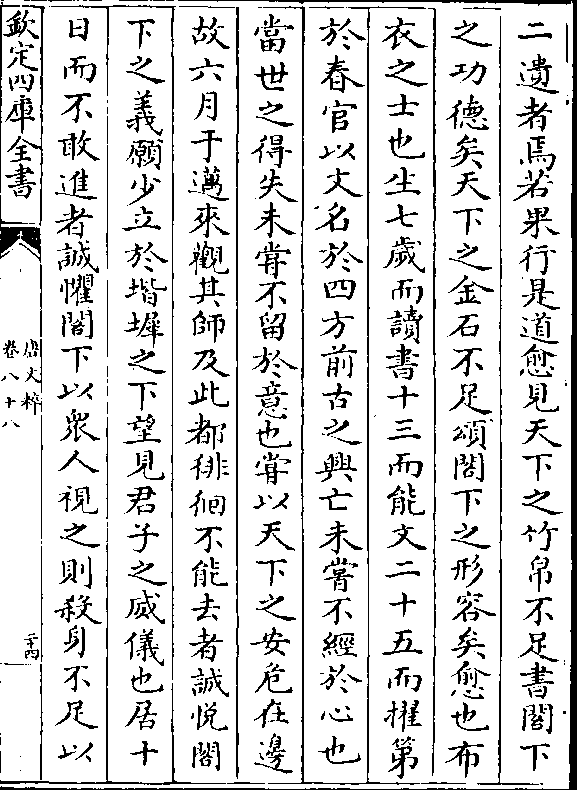 二遺者焉若果行是道愈見天下之竹帛不足書閣下
之功德矣天下之金石不足頌閣下之形容矣愈也布
衣之士也生七歲而讀書十三而能文二十五而擢第
於春官以文名於四方前古之興亡未嘗不經於心也
當世之得失未嘗不留於意也嘗以天下之安危在邊
故六月于邁來觀其師及此都徘徊不能去者誠悅閣
下之義願少立於堦墀之下望見君子之威儀也居十
日而不敢進者誠懼閣下以衆人視之則殺身不足以
欽定四庫全書
唐文粹
卷八十八
二十四